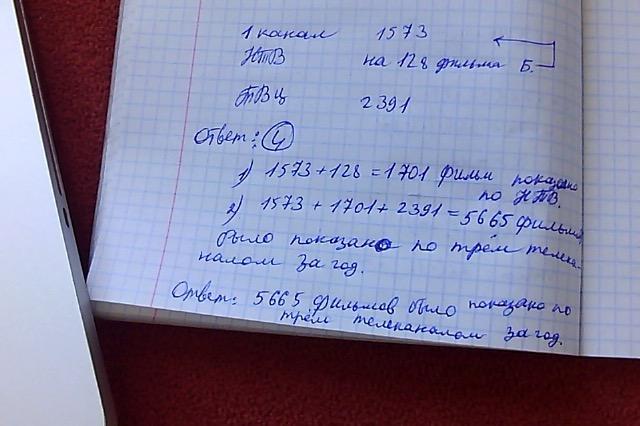 1 канал 1573
НТВ на 128 фильма Б.
ТВЦ 2391
Ответ: 4
1) 1573 + 128 = 1701 фильм показано
по НТВ.
2) 1573 + 1701 + 2391 = 5665 фильма
было показано по трём телека-
налом за год.
Ответ: 5665 фильмов было показано по
трём телеканалом за год.